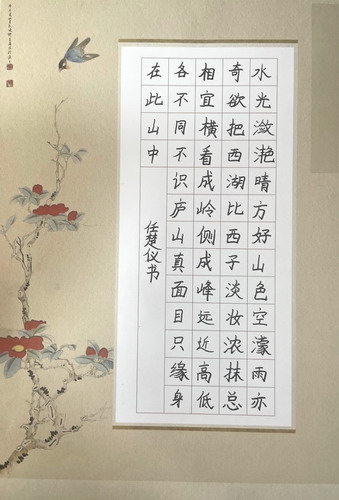 水光潋滟晴方好山色空濛雨亦
奇欲把西湖比西子淡妆浓抹总
相宜横看成岭侧成峰远近高低
各不同不识庐山真面目只缘身
在此山中
任楚仪书